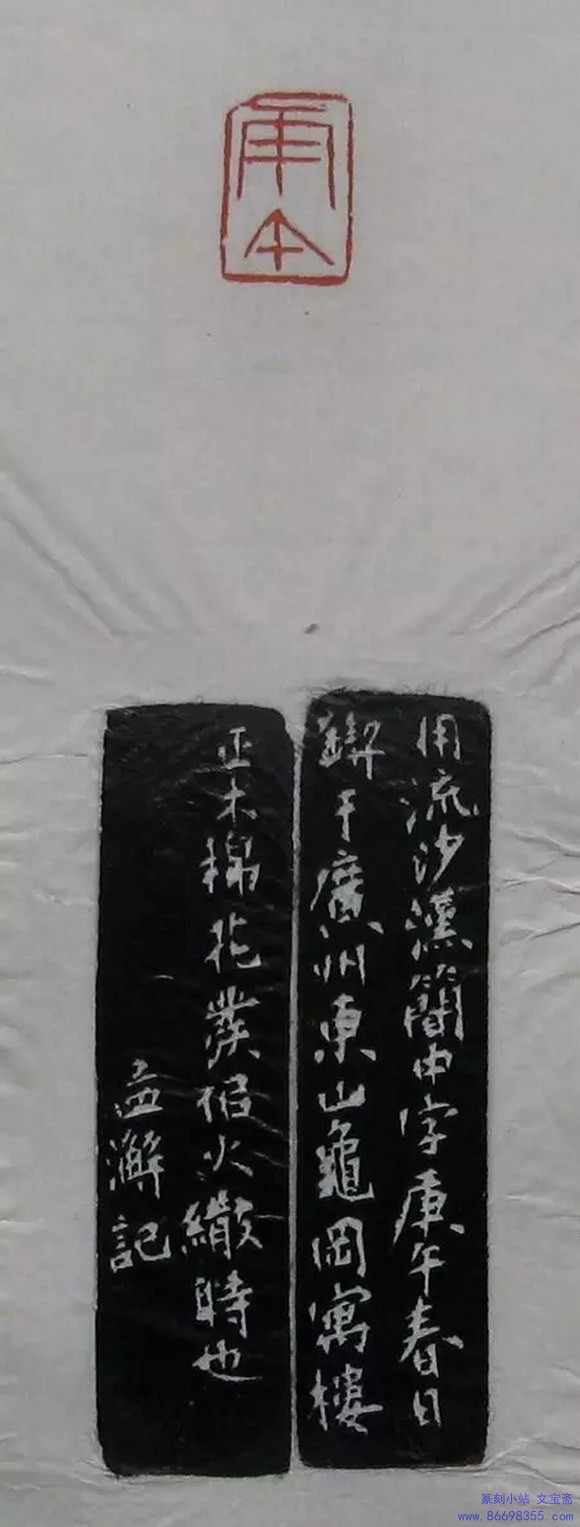 用流沙漢簡中字庚午春日
鍥于廣州東山龜岡寓樓
正木棉花發佀火繖時也
孟澥記
篆刻小站 文宝斋
www.86698355.com